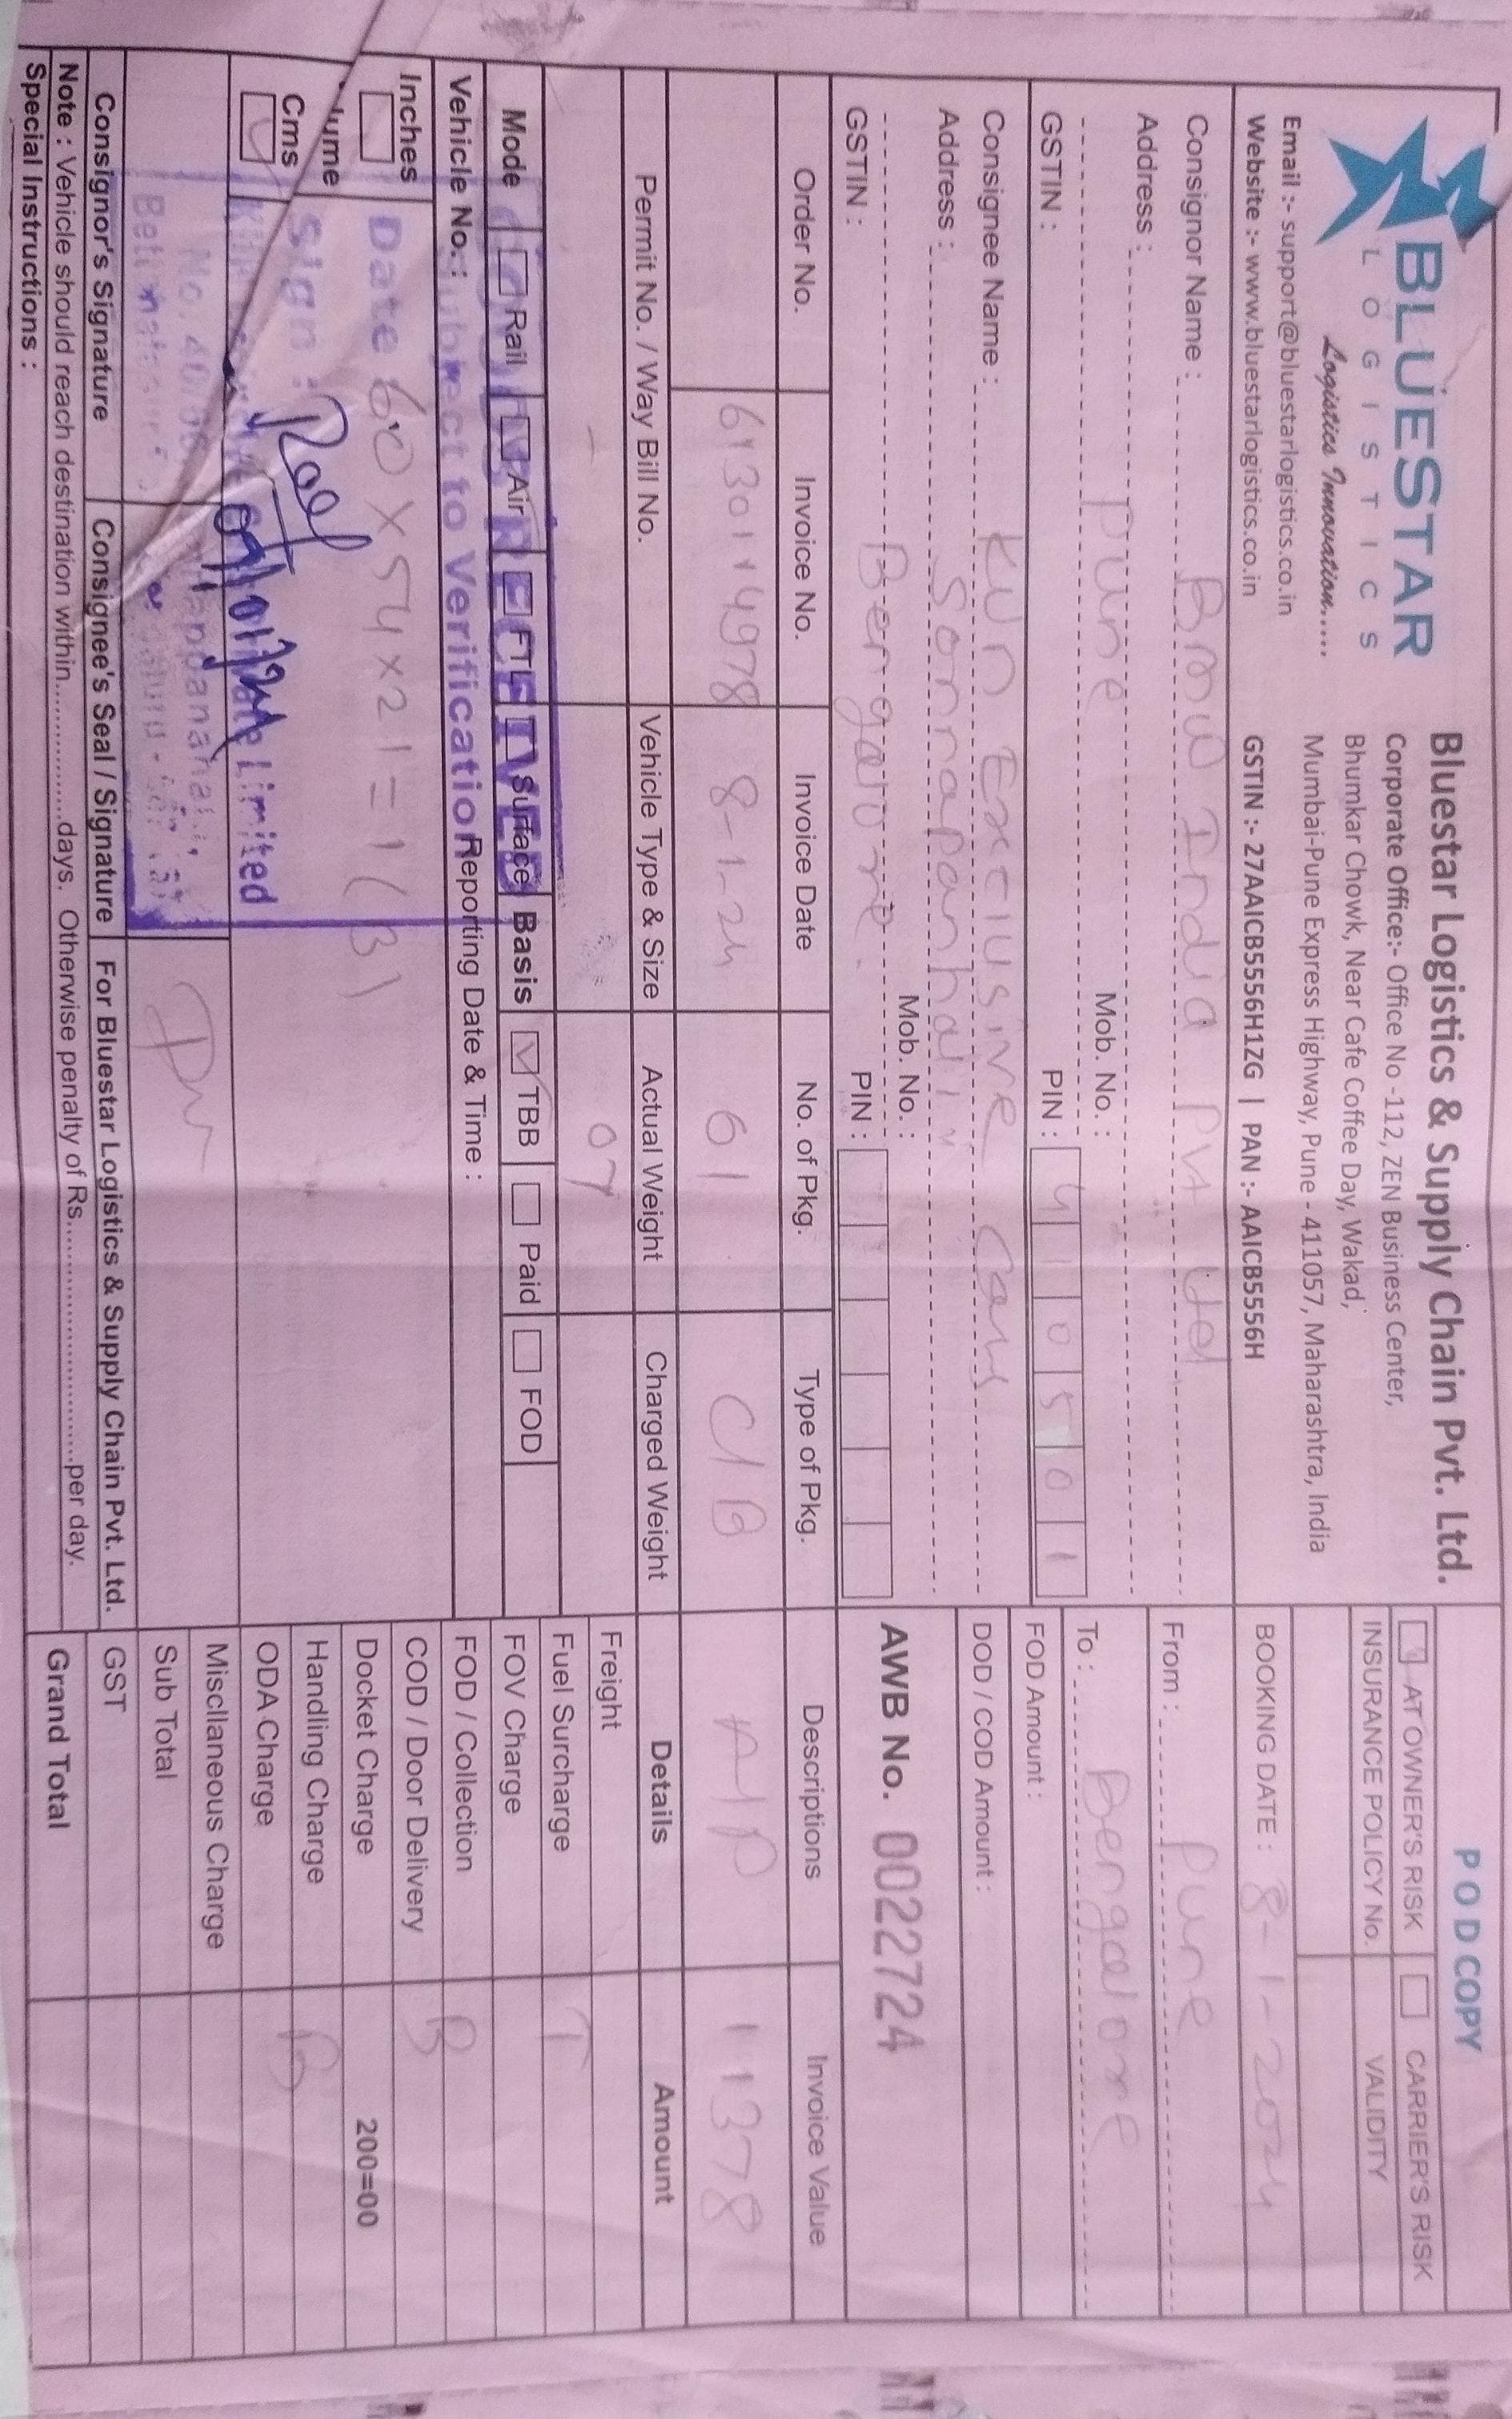 BLUESTAR
LOGISTICS
Logistics Innovation.....
Email :- support@bluestarlogistics.co.in
Website :- www.bluestarlogistics.co.in
Bluestar Logistics & Supply Chain Pvt. Ltd.
Corporate Office:- Office No -112, ZEN Business Center,
Bhumkar Chowk, Near Cafe Coffee Day, Wakad,
Mumbai-Pune Express Highway, Pune - 411057, Maharashtra, India
GSTIN :- 27AAICB5556H1ZG | PAN :- AAICB5556H
POD COPY
AT OWNER'S RISK CARRIER'S RISK
INSURANCE POLICY No. VALIDITY
BOOKING DATE : 8-1-2024
Consignor Name : BMW India Pvt Ltd
Address :
Pune Mob. No. :
GSTIN : PIN : 410501
From : Pune
To : Bengalore
FOD Amount :
DOD / COD Amount :
Consignee Name : KUN Exclusive Cars
Address : Sonnapanhalli
Mob. No. :
Bengalore.
GSTIN : PIN :
AWB No. 0022724
Order No. Invoice No. Invoice Date No. of Pkg. Type of Pkg. Descriptions Invoice Value
6130114978 8-1-24 01 C/B A/P 11378
Permit No. / Way Bill No. Vehicle Type & Size Actual Weight Charged Weight Details Amount
- 07
Freight
Fuel Surcharge T
FOV Charge
FOD / Collection B
COD / Door Delivery
Docket Charge 200=00
Handling Charge B
ODA Charge
Miscllaneous Charge
Sub Total
GST
Grand Total
Mode Rail Air FTL Surface Basis TBB Paid FOD
GOODS RECEIVED
Vehicle No. : Reporting Date & Time :
Subject to Verification
Inches
Date 60 X 54 X 21 = 1 (3)
Sign :
Cms
09/01/24
Private Limited
Consignor's Signature Consignee's Seal / Signature For Bluestar Logistics & Supply Chain Pvt. Ltd.
Note : Vehicle should reach destination within.................days. Otherwise penalty of Rs.............................per day.
Special Instructions :